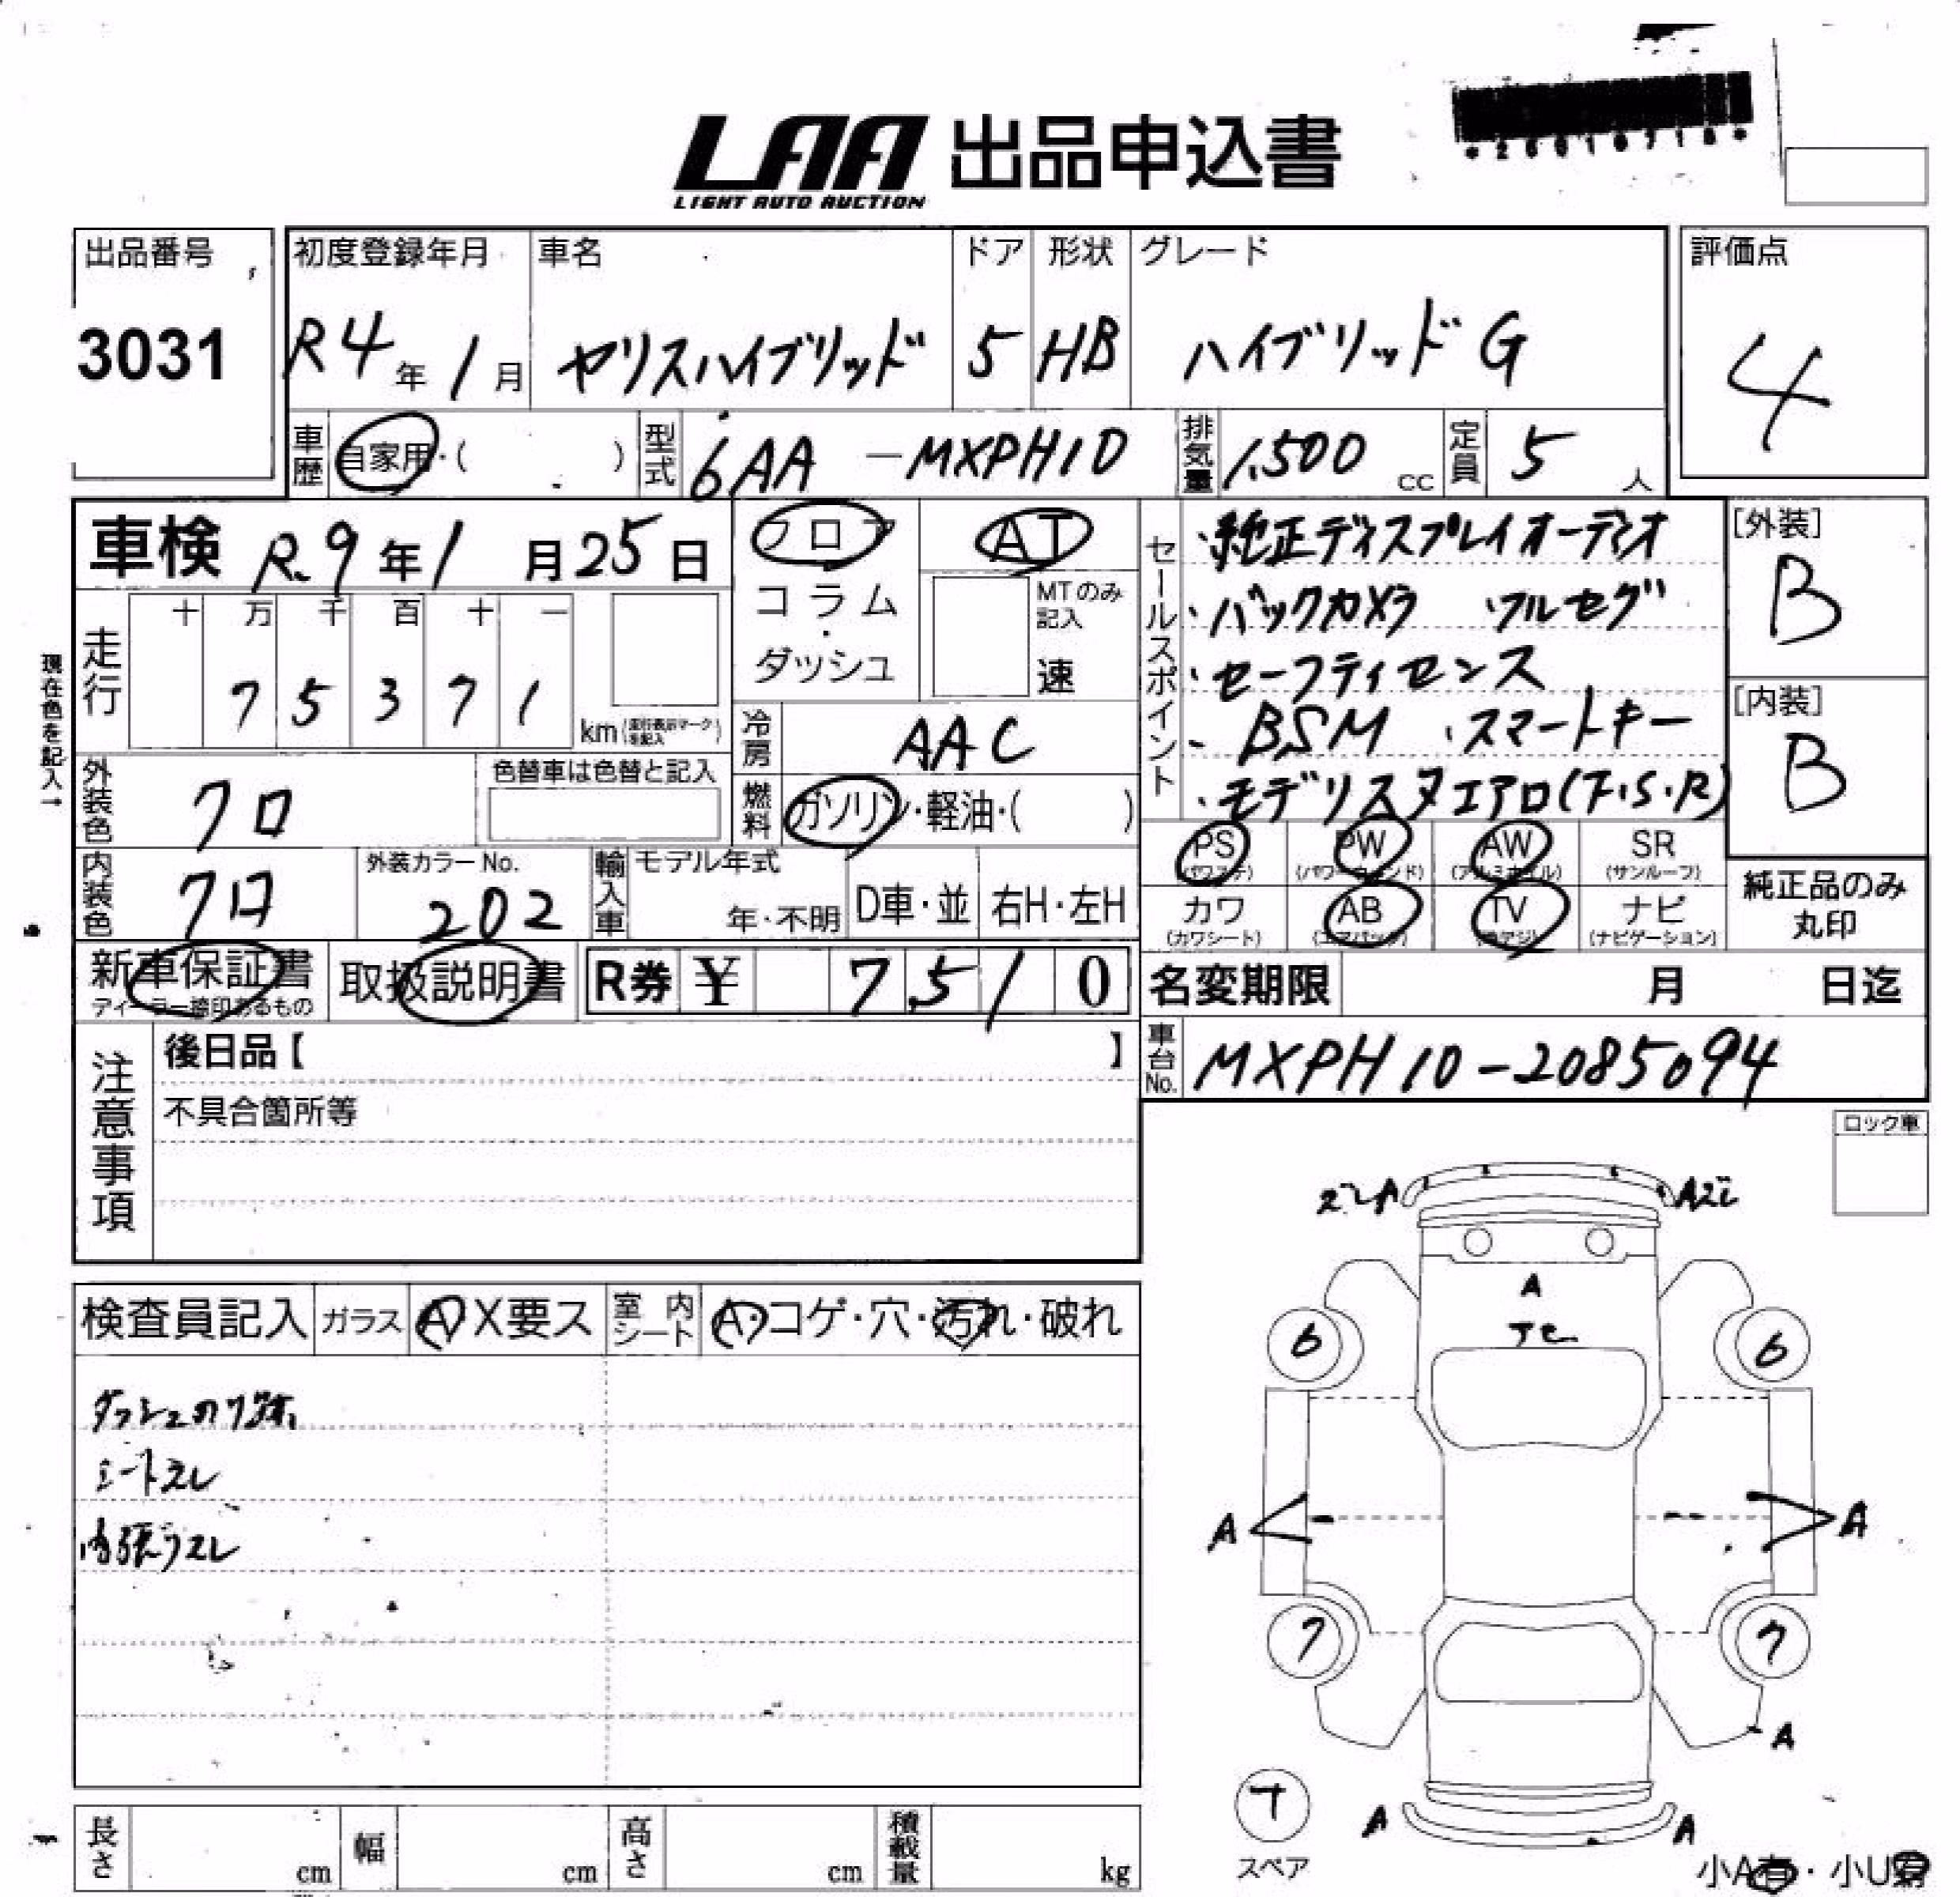 LAA 出品申込書
LIGHT AUTO AUCTION
出品番号
3031
初度登録年月
R4年1月
車名
ヤリスハイブリッド
ドア
5
形状
HB
グレード
ハイブリッドG
評価点
4
車歴
自家用・( )
型式
6AA -MXPH10
排気量
1,500 cc
定員
5 人
車検 R.9年1月25日
フロア
コラム
・
ダッシュ
AT
MTのみ
記入
速
セールスポイント
・純正ディスプレイオーディオ
・バックカメラ ・フルセグ
・セーフティセンス
・BSM ・スマートキー
・モデリスタエアロ(F・S・R)
[外装]
B
[内装]
B
現在色を記入→
走行
十 万 千 百 十 一
7 5 3 7 1
km(走行表示マークを記入)
冷房
AAC
燃料
ガソリン・軽油・( )
外装色
クロ
色替車は色替と記入
内装色
クロ
外装カラーNo.
202
輸入車
モデル年式
年・不明
D車・並
右H・左H
PS
(パワステ)
PW
(パワーウィンド)
AW
(アルミホイル)
SR
(サンルーフ)
カワ
(カワシート)
AB
(エアバック)
TV
ナビ
(ナビゲーション)
純正品のみ
丸印
新車保証書
ディーラー捺印あるもの
取扱説明書
R券 ¥ 7510
名変期限 月 日迄
車台No.
MXPH10-2085094
注意事項
後日品【 】
不具合箇所等
ロック車
検査員記入
ガラス
A X要ス
室内シート
A・コゲ・穴・汚れ・破れ
ダッシュのり跡
シートスレ
内張りスレ
A
A
6
6
A
A
7
7
A
A
A
スペア
長さ cm
幅 cm
高さ cm
積載量 kg
小A有・小U有